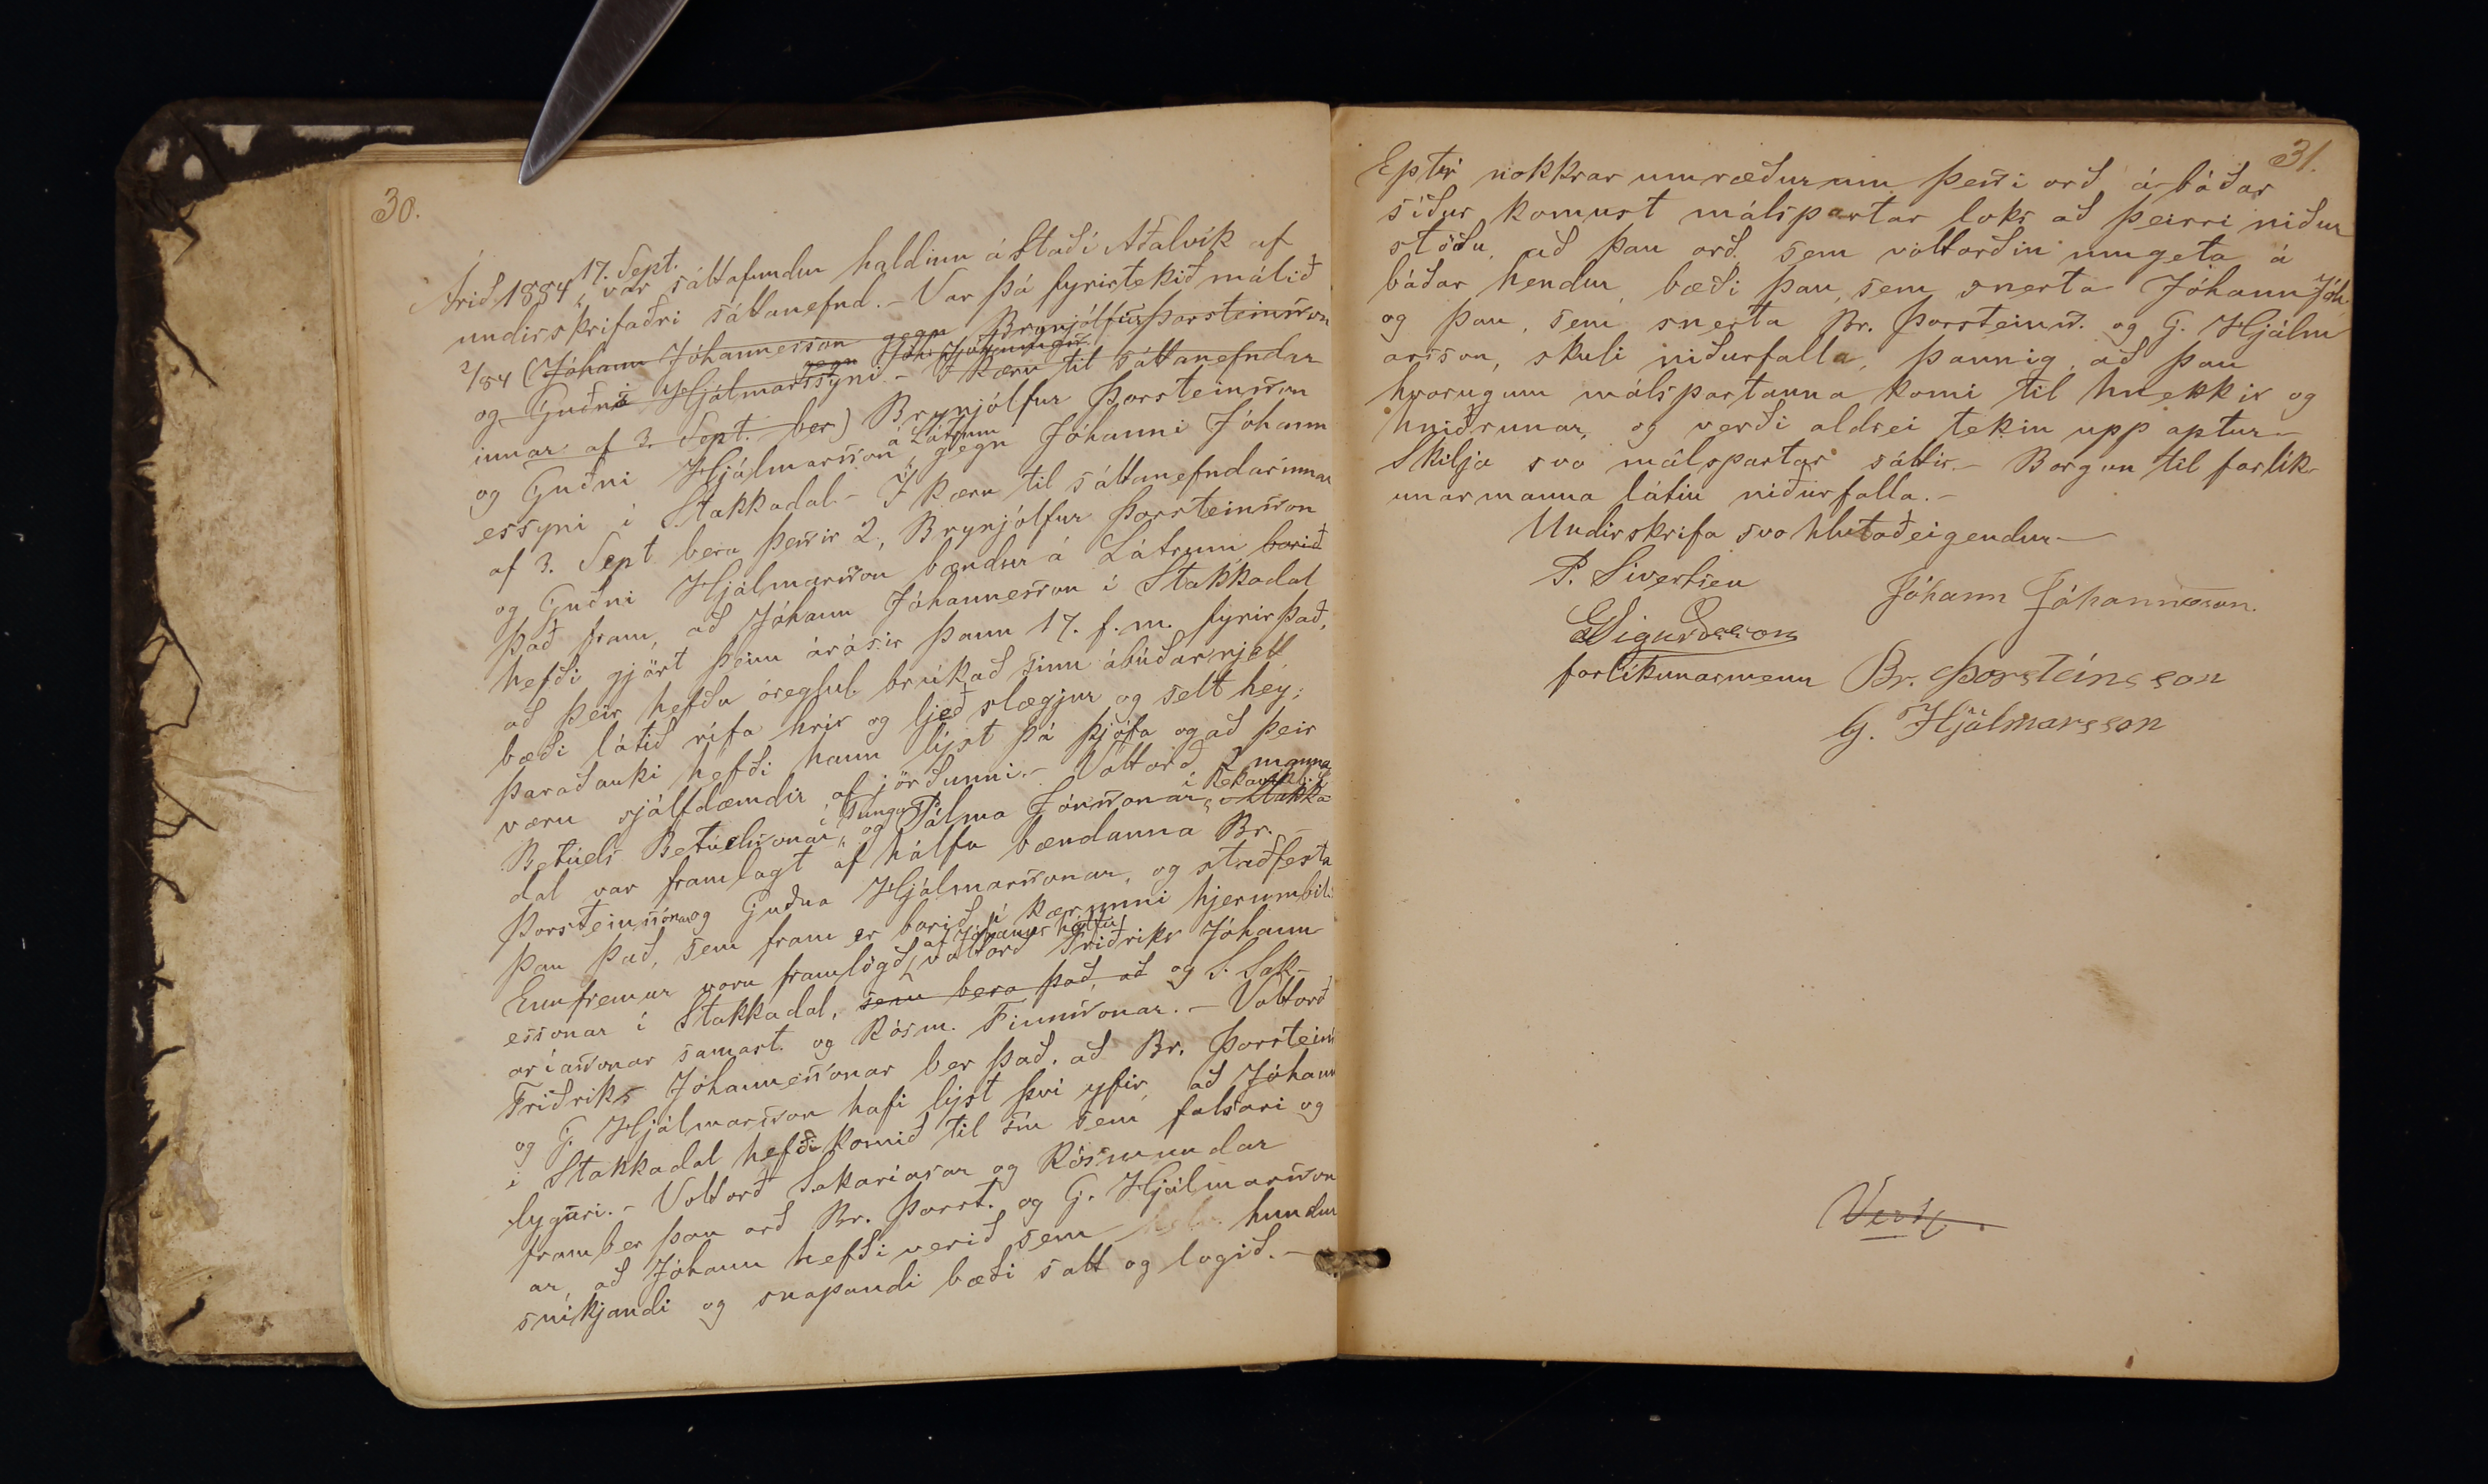 30.
Árið 1884 17. Sept. var sáttafundur haldinn á Stað í Aðalvík af
undirskrifaðri sáttanefnd. - Var þá fyrirtekið málið
2/84 (Jóhann Jóhannesson gegn Brynjólfur Þorsteinsson
og Guðni Hjálmarssyni. - Í kæru til sáttanefndar
innar af 3. Sept. ber) Brynjólfur Þorsteinsson
og Guðni Hjálmarsson á Látrum gegn Jóhanni Jóhann
essyni í Stakkadal - Í kæru til sáttanefndarinnar
af 3. Sept bera þessir 2, Brynjólfur Þorsteinsson
og Guðni Hjálmarsson bændur á Látrum borið
það fram, að Jóhann Jóhannesson í Stakkadal
hefði gjört þeim árásir þann 17. f. m. fyrir það,
að þeir hefðu óreglul. brúkað sinn ábúðarrjett,
bæði látið rífa hrís og ljeð slægjur og selt hey;
þaraðauki hefði hann lýst þá þjófa og að þeir
væru sjálfdæmdir af jörðunni. - Vottorð 2 manna
Betúels Betúelssonar í Tungu og Pálma Jónssonar í Rekavík í Stakka
dal var framlagt af hálfu bændanna Br. -
Þorsteinssonar og Guðna Hjálmarssonar, og staðfesta
þau það, sem fram er borið í kærunni hjerumbil.
Ennfremur voru framlögð af Jóhanns hálfu vottorð Friðriks Jóhann
essonar í Stakkadal, sem bera það, að og S. Sak-
aríassonar samast. og Rósm. Finnssonar. - Vottorð
Friðriks Jóhannessonar ber það, að Br. Þorsteins
og G. Hjálmarsson hafi lýst því yfir, að Jóhann
í Stakkadal hefði komið til sín sem falsari og
lygari. - Vottorð Sakaríasar og Rósmundar
framber þau orð Br. Þorst. og G. Hjálmarsson
ar, að Jóhann hefði verið sem hundur
sníkjandi og snapandi bæði satt og logið. -
31.
Eptir nokkrar umræður um þessi orð á báðar
síður komust málspartar loks að þeirri niður
stöðu, að þau orð, sem vottorðin umgeta á
báðar hendur, bæði þau, sem snerta Jóhann Jóh
og þau, sem snerta Br. Þorsteinss. og G. Hjálm
arsson, skuli niðurfalla, þannig, að þau
hvorugum málspartanna komi til hnekkir og
hniðrunar, og verði aldrei tekin upp aptur -
Skilja svo málspartar sáttir. - Borgun til forlík-
unarmanna látin niðurfalla. -
Undirskrifa svo hlutaðeigendur -
P. Sivertsen
Jóhann Jóhannesson.
GSigurdsson
forlíkunarmenn
Br. Þorsteinsson
G. Hjálmarsson